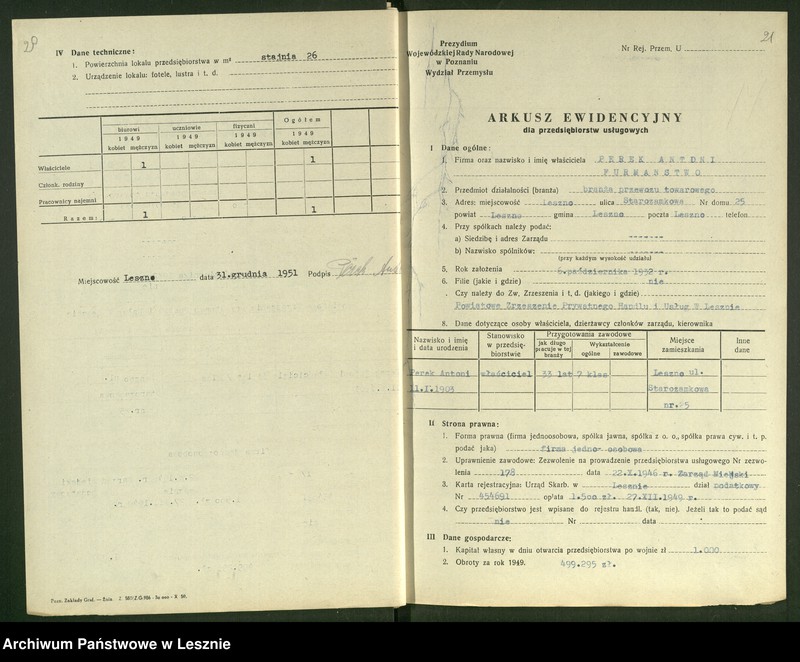 29
IV Dane techniczne:
1. Powierzchnia lokalu przedsiębiorstwa w m² stajnia 26
2. Urządzenie lokalu: fotele, lustra i t. d.
biurowi uczniowie fizyczni Ogółem
1949 1949 1949 1949
kobiet mężczyzn kobiet mężczyzn kobiet mężczyzn kobiet mężczyzn
Właściciele 1 1
Członk. rodziny
Pracownicy najemni
Razem: 1 1
Miejscowość Leszno data 31.grudnia 1951 Podpis
Archiwum Państwowe w Lesznie
21
Prezydium
Wojewódzkiej Rady Narodowej
w Poznaniu
Wydział Przemysłu
Nr Rej. Przem. U
ARKUSZ EWIDENCYJNY
dla przedsiębiorstw usługowych
I Dane ogólne:
1. Firma oraz nazwisko i imię właściciela PEREK ANTONI
FURMAŃSTWO
2. Przedmiot działalności (branża) branża przewozu towarowego
3. Adres: miejscowość Leszno ulica Starozamkowa Nr domu 25
powiat Leszno gmina Leszno poczta Leszno telefon
4. Przy spółkach należy podać:
a) Siedzibę i adres Zarządu -------
b) Nazwisko spólników: -------
(przy każdym wysokość udziału)
5. Rok założenia 6.października 1932 r.
6. Filie (jakie i gdzie) nie
Czy należy do Zw. Zrzeszenia i t, d. (jakiego i gdzie)
Powiatowe Zrzeszenie Prywatnego Handlu i Usług W Lesznie
8. Dane dotyczące osoby właściciela, dzierżawcy członków zarządu, kierownika
Nazwisko i imię i data urodzenia
Stanowisko w przedsiębiorstwie
Przygotowania zawodowe
jak długo pracuje w tej branży
Wykształcenie
ogólne zawodowe
Miejsce zamieszkania
Inne dane
Perek Antoni właściciel 33 lat 7 klas Leszno ul.
11.I.1903 Starozamkowa
nr.25
II Strona prawna:
1. Forma prawna (firma jednoosobowa, spółka jawna, spółka z o. o., spółka prawa cyw. i t. p.
podać jaka) firma jedno- osobowa
2. Uprawnienie zawodowe: Zezwolenie na prowadzenie przedsiębiorstwa usługowego Nr zezwo-
lenia 178 data 22.X.1946 r. Zarząd Miejski
3. Karta rejestracyjna: Urząd Skarb. w Lesznie dział podatkowy
Nr 454691 opłata 1.500 zł. 27.XII.1949 r.
4. Czy przedsiębiorstwo jest wpisane do rejestru handl. (tak, nie). Jeżeli tak to podać sąd
nie Nr data
III Dane gospodarcze:
1. Kapitał własny w dniu otwarcia przedsiębiorstwa po wojnie zł 1.000
2. Obroty za rok 1949. 499.295 zł.